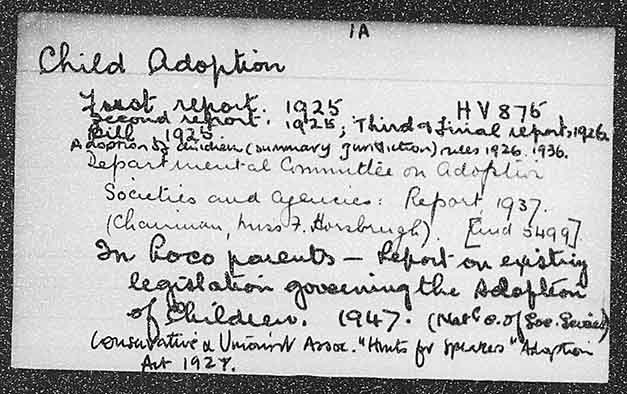 1A
Child Adoption
First report. 1925 HV875
Second report. 1925; Third & Final reports, 1926.
Bill 1925.
Adoption of Children (Summary Jurisdiction) rules 1926. 1936.
Departmental Committee on Adoption
Societies and Agencies: Report 1937.
(Chairman, Miss F. Horsbrugh). [Cmd 5499]
In Loco parents – Report on existing
legislation governing the Adoption
of Children. 1947. (Nat. C. of Soc. Service)
Conservative & Unionist Assoc. "Hints for Speakers" Adoption
Act 1927.